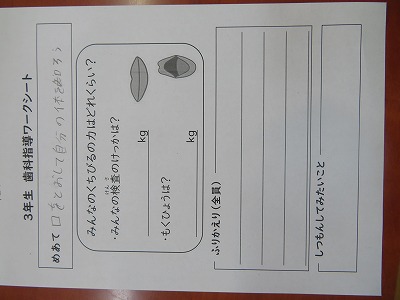 3年生 歯科指導ワークシート
めあて 口をとおして自分の体を知ろう
みんなのくちびるの力はどれくらい?
・みんなの検査のけっかは?
けんさ
kg
・もくひょうは?
kg
ふりかえり(全員)
しつもんしてみたいこと